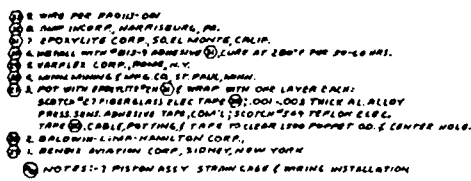 9. WIRE PER
8. AMP INCORP., HARRISBURG, PA.
7. EPOXYLITE CORP., SO. EL MONTE, CALIF.
6. INSTALL WITH ADHESIVE, CURE AT 200°F PER HRS.
5. VARFLEX CORP., ROME, N.Y.
4. MINN. MINING & MFG. CO., ST. PAUL, MINN.
3. POT WITH EPOXYLITE & WRAP WITH ONE LAYER EACH:
SCOTCH #27 FIBERGLASS ELEC TAPE; .001-.003 THICK AL. ALLOY
PRESS. SENS. ADHESIVE TAPE, COM'L; SCOTCH #549 TEFLON ELEC.
TAPE. CABLE, POTTING, & TAPE TO CLEAR POPPET O.D. & CENTER HOLE.
2. BALDWIN-LIMA-HAMILTON CORP.,
1. BENDIX AVIATION CORP., SIDNEY, NEW YORK
NOTES:- PISTON ASSY STRAIN GAGE & WIRING INSTALLATION